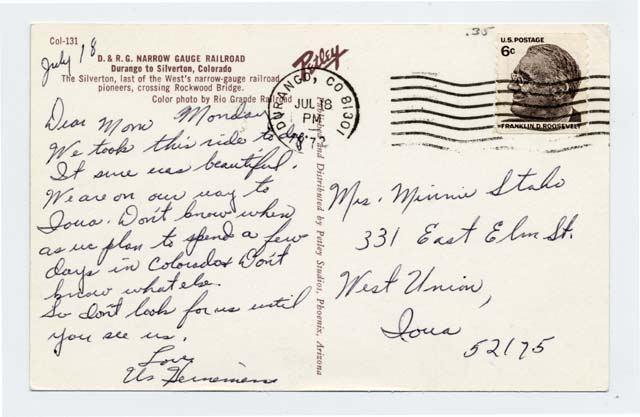 Col-131
D. & R. G. NARROW GAUGE RAILROAD
Durango to Silverton, Colorado
The Silverton, last of the West's narrow-gauge railroad
pioneers, crossing Rockwood Bridge.
Color photo by Rio Grande Railroad
July 18
Dear Mom Monday
We took this ride to day
It sure was beautiful.
We are on our way to
Iowa. Don't know when
as we plan to spend a few
days in Colorado. Don't
know what else.
So don't look for us until
you see us.
Love
Us
Petley
and Distributed by Petley Studios, Phoenix, Arizona
.35
DURANGO, CO 81301
JUL 18
PM
U.S. POSTAGE
6c
FRANKLIN D. ROOSEVELT
Mrs. Minnie Staho
331 East Elm St.
West Union,
Iowa
52175